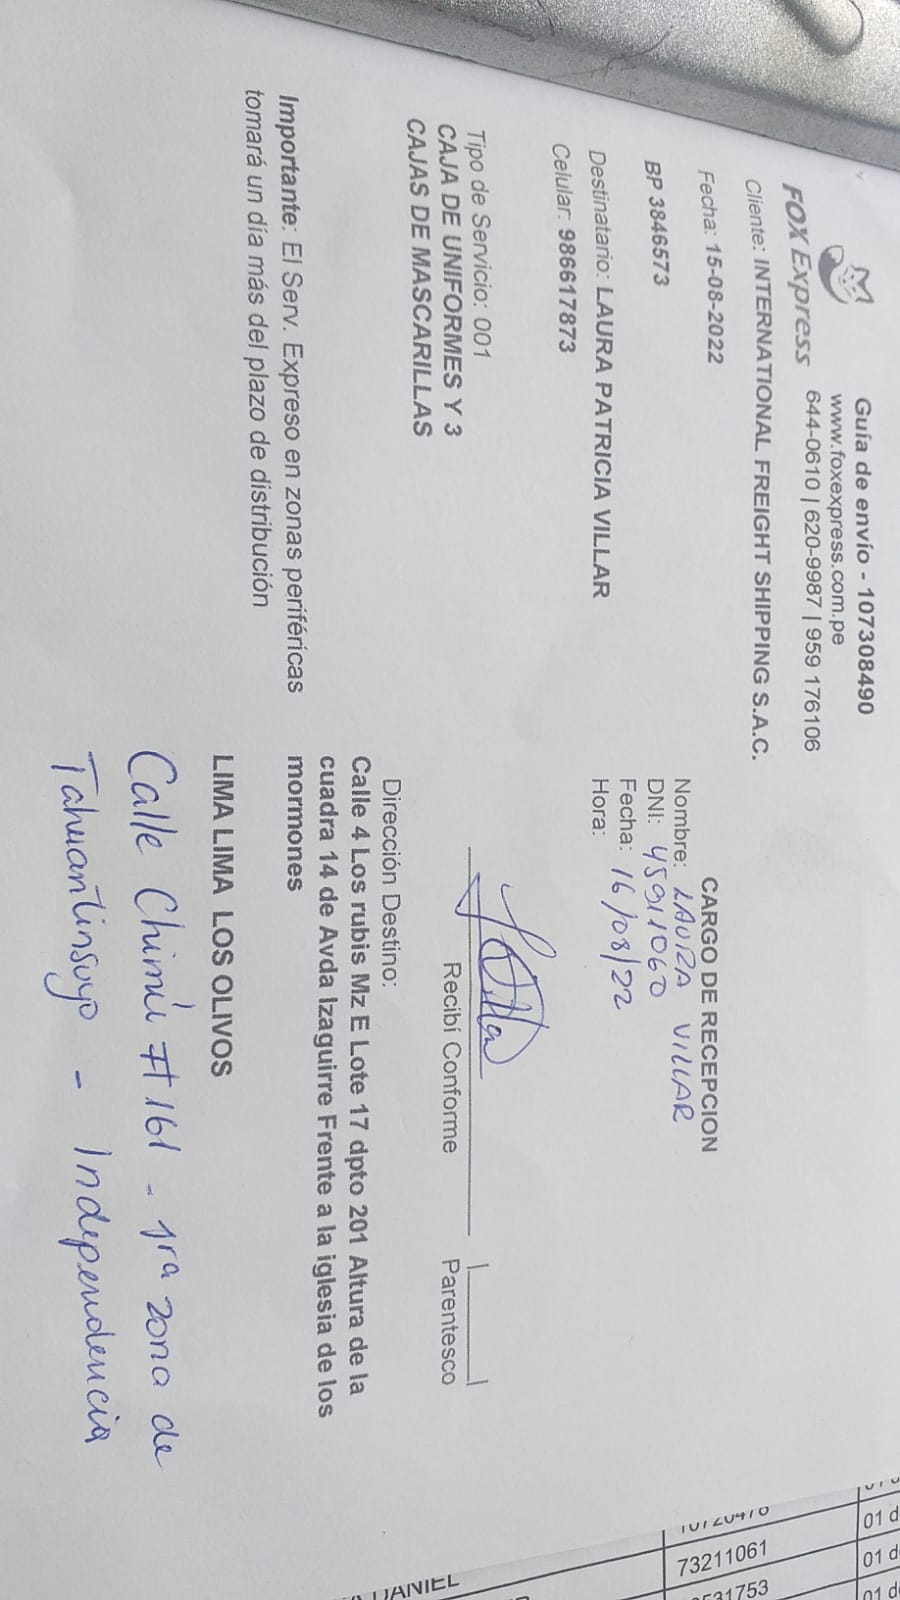 Guía de envío - 107308490
www.foxexpress.com.pe
FOX Express
644-0610 | 620-9987 | 959 176106
Cliente: INTERNATIONAL FREIGHT SHIPPING S.A.C.
Fecha: 15-08-2022
BP 3846573
Destinatario: LAURA PATRICIA VILLAR
Celular: 986617873
Tipo de Servicio: 001
CAJA DE UNIFORMES Y 3
CAJAS DE MASCARILLAS
Importante: El Serv. Expreso en zonas periféricas
tomará un día más del plazo de distribución
CARGO DE RECEPCION
Nombre: LAURA VILLAR
DNI: 45911060
Fecha: 16/08/22
Hora:
Recibí Conforme
Parentesco
Dirección Destino:
Calle 4 Los rubis Mz E Lote 17 dpto 201 Altura de la
cuadra 14 de Avda Izaguirre Frente a la iglesia de los
mormones
LIMA LIMA LOS OLIVOS
Calle Chimú # 161 - 1ra zona de
Tahuantinsuyo - Independencia
DANIEL
73211061
01 d
01 d
01 d